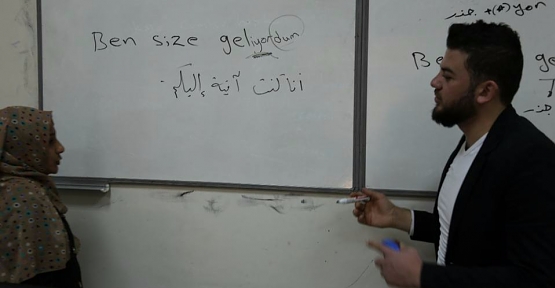 Ben size geliyordum
انا كنت آتية إليكم.
جذر +(ه) yor
Be
ge
جذر